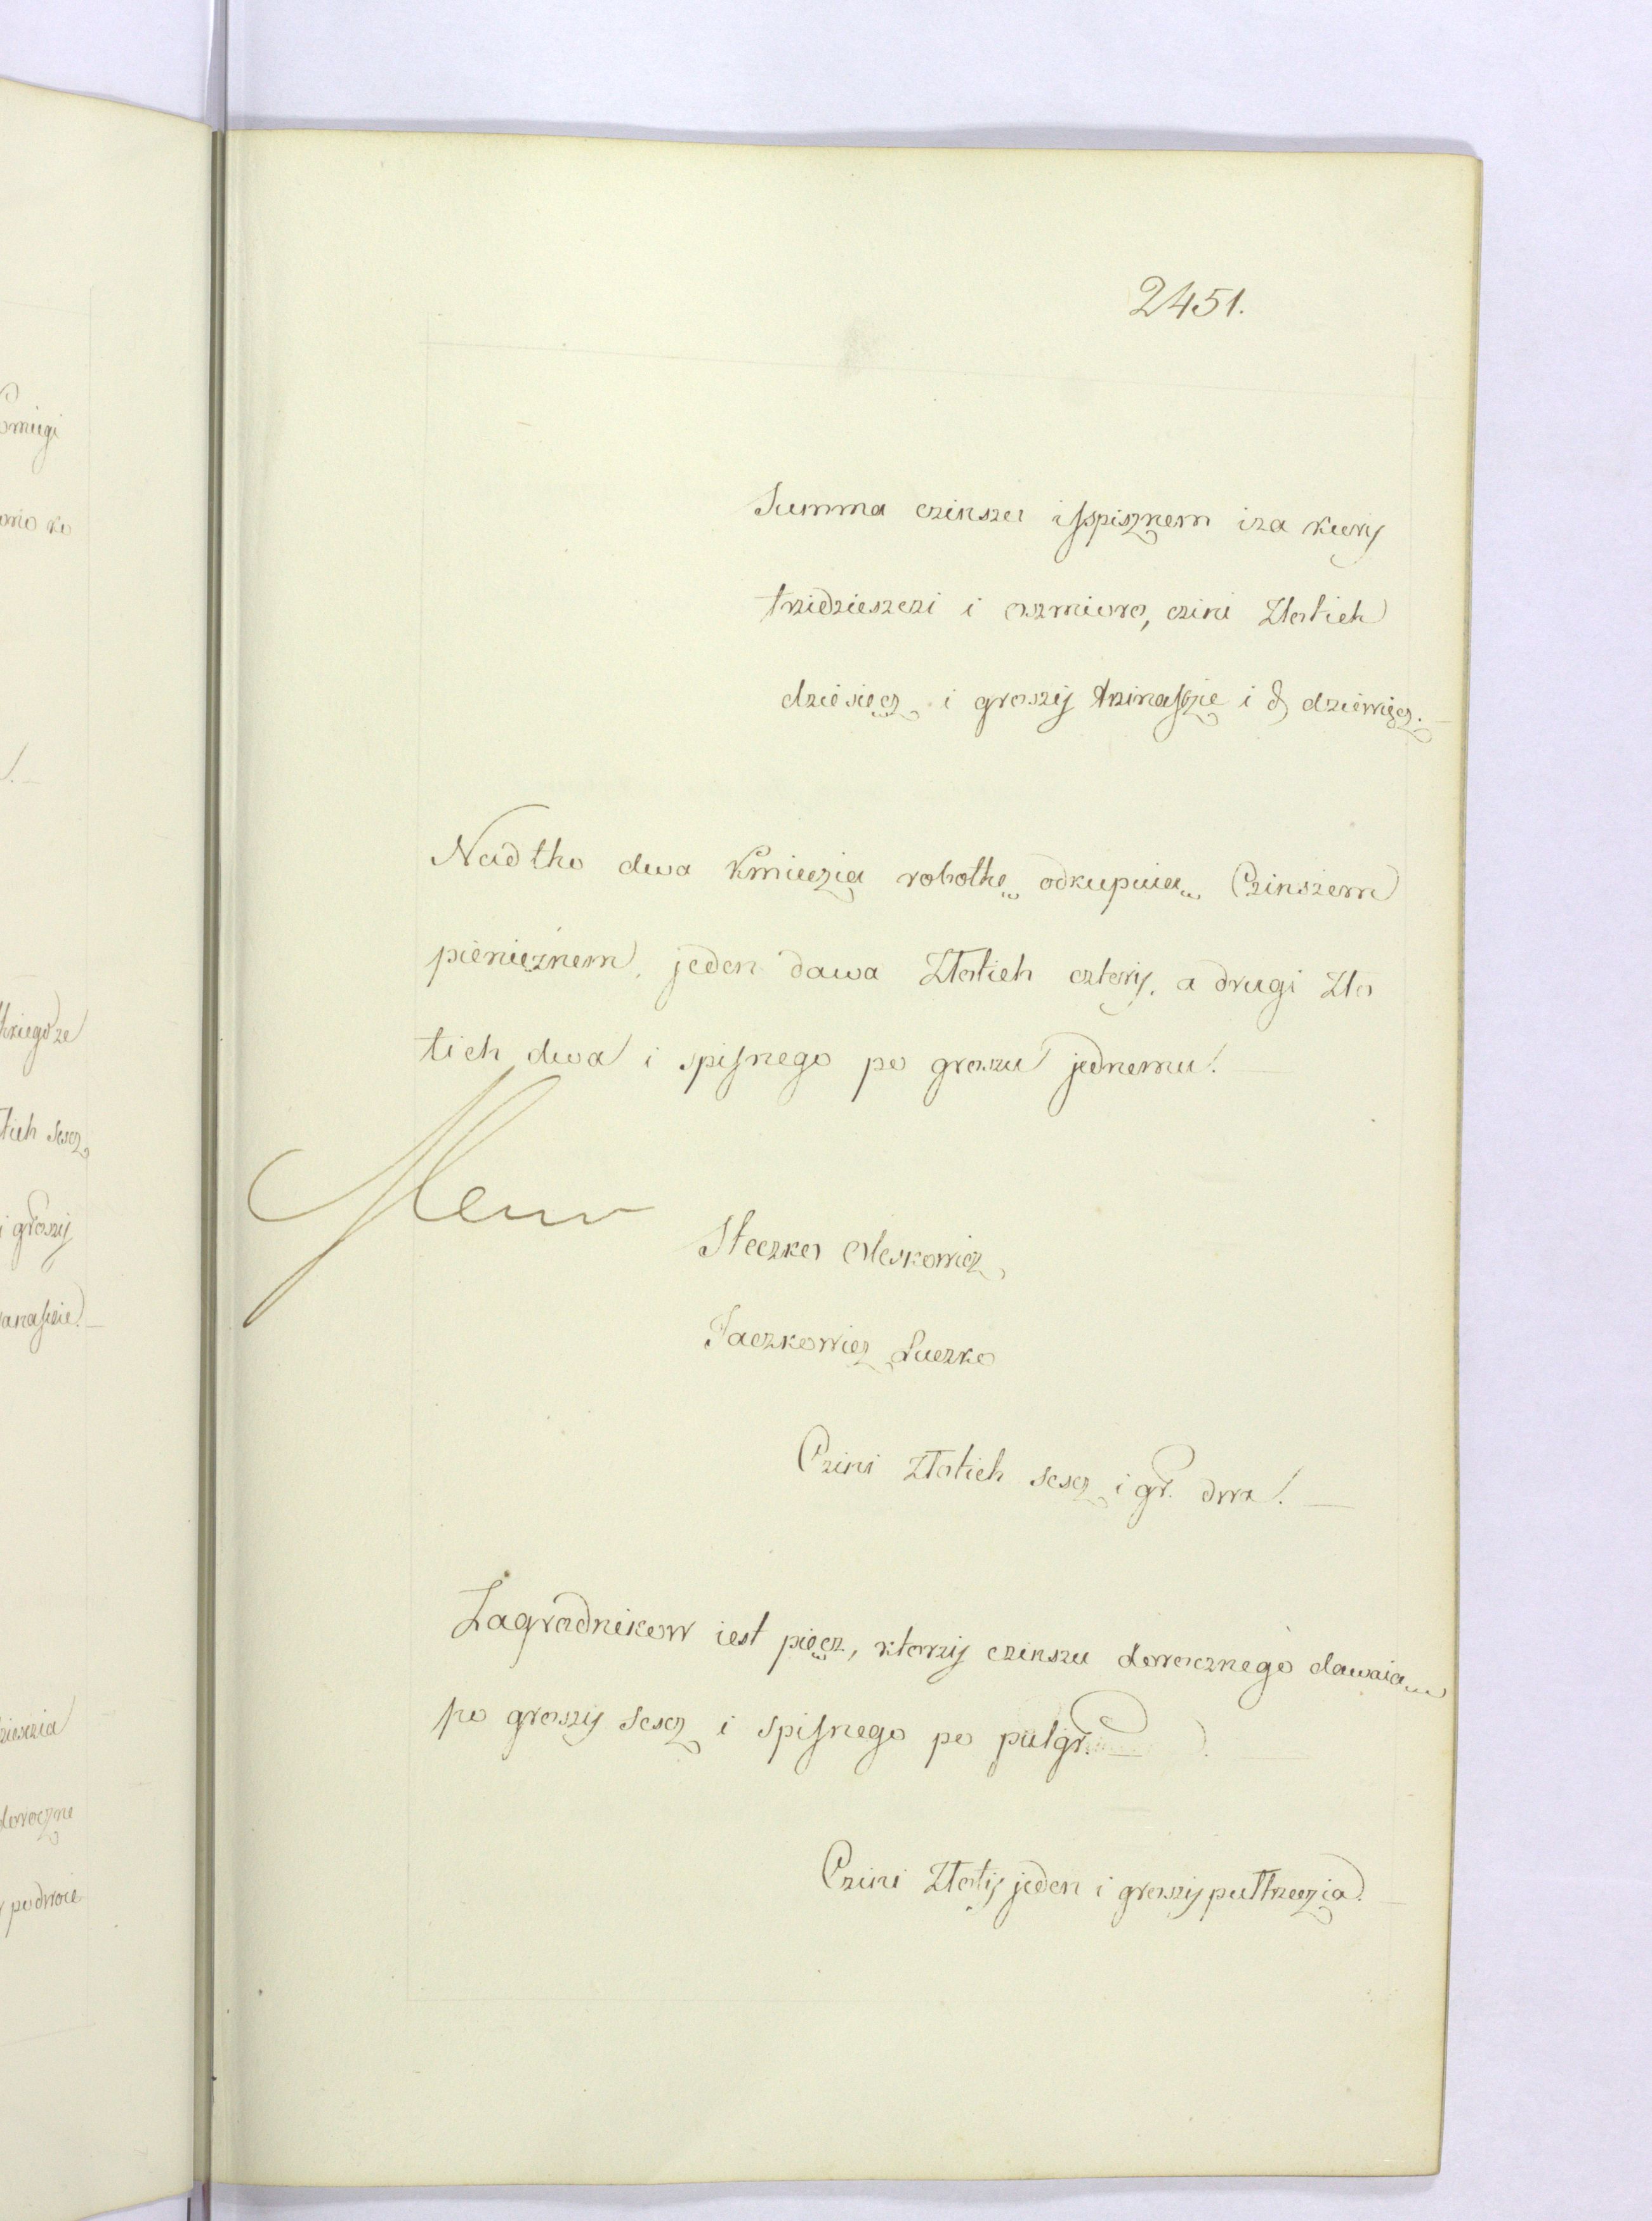 2451.
Summa czinszu isspisznem iza kury
trzidzieszczi i oszmioro, czini Złotich
dziesięcz i groszij trzinasczie i d dziewięcz.
Nadtho dwa Kmieczia robothę odkupuią Czinszem
pienieznem, jeden dawa Złotich cztery, a drugi Zło
tich dwa i spisnego po groszu jednemu.
Steczko Oleskowicz
Jaczkowicz Luczko
Czini Złotich sescz i gr. dwa.
Zagrodnikow iest pięcz, ktorzij czinszu dorocznego dawaią
po groszij sescz i spisnego po pułgr.
Czini Złotij jeden i groszij pułtrzeczia.
omiegi
owo ko
kiego ze
tich sescz
i groszij
anascie.
zieszia
doroczne
podwoie